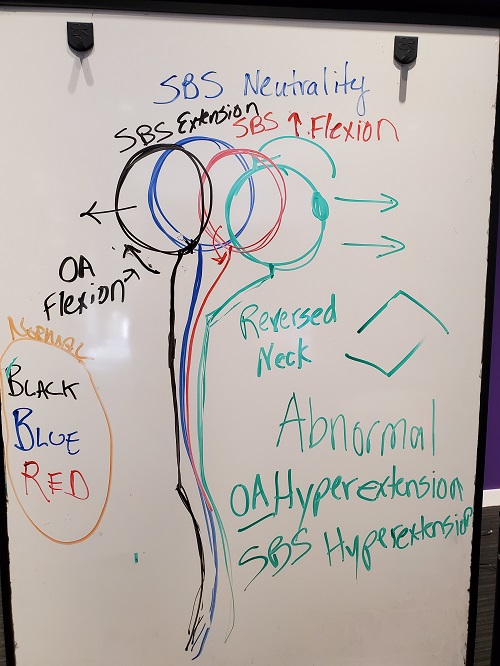 SBS Neutrality
SBS Extension
SBS ↑ Flexion
OA
Flexion
Reversed
Neck
Normal
BLACK
BLUE
RED
Abnormal
OA Hyperextension
SBS Hyperextension